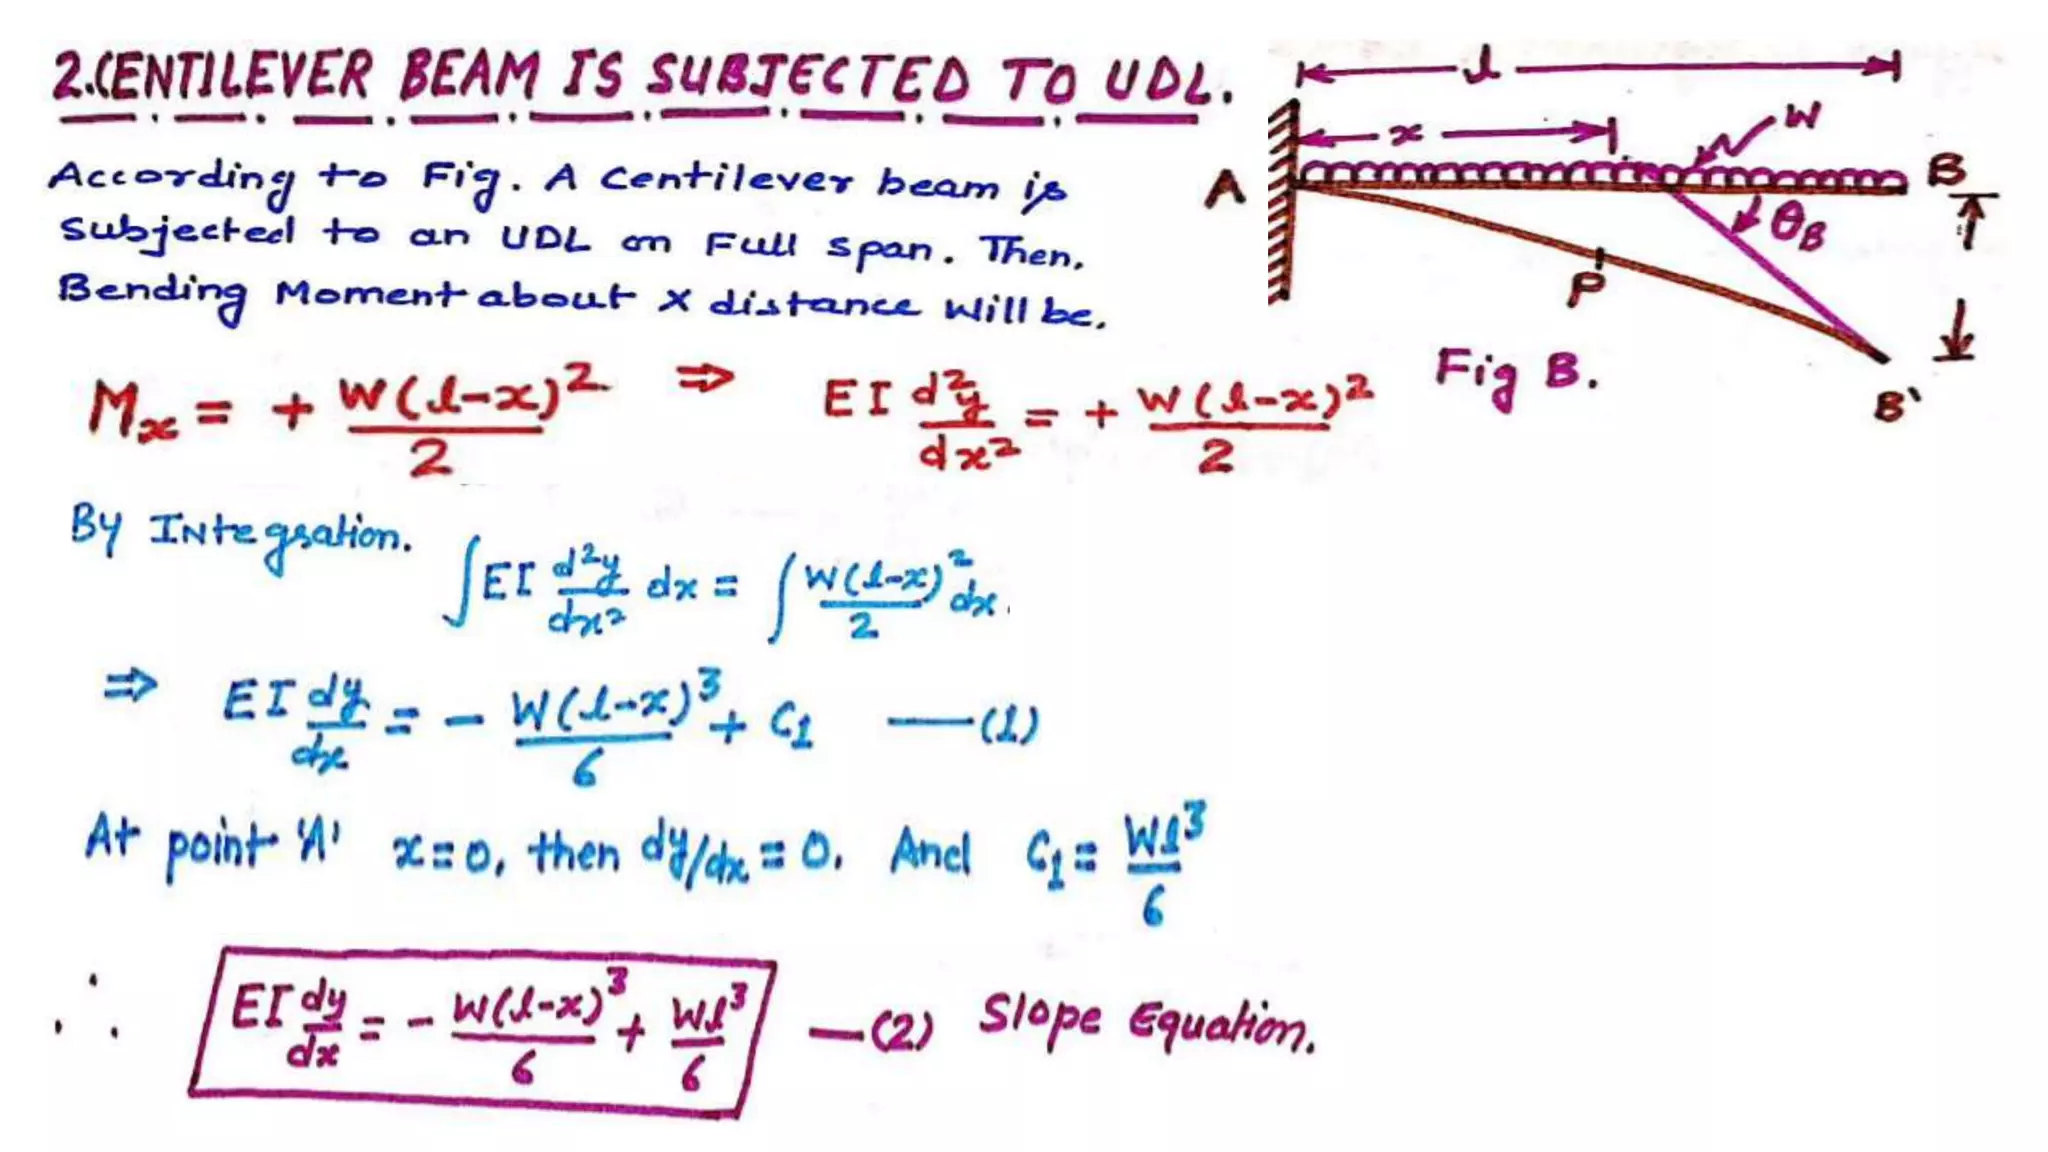 2.CENTILEVER BEAM IS SUBJECTED TO UDL.
According to Fig. A Centilever beam is
Subjected to an UDL on Full span. Then,
Bending Moment about X distance Will be,
Mx = + W(l-x)²/2 ⇒ EI d²y/dx² = + W(l-x)²/2
l
x
W
A
B
θB
P
B'
Fig B.
By INtegration.
∫EI d²y/dx² dx = ∫W(l-x)²/2 dx.
⇒ EI dy/dx = - W(l-x)³/6 + C1 —(1)
At point 'A' x=0, then dy/dx = 0. And C1 = Wl³/6
∴ EI dy/dx = - W(l-x)³/6 + Wl³/6 —(2) Slope Equation.